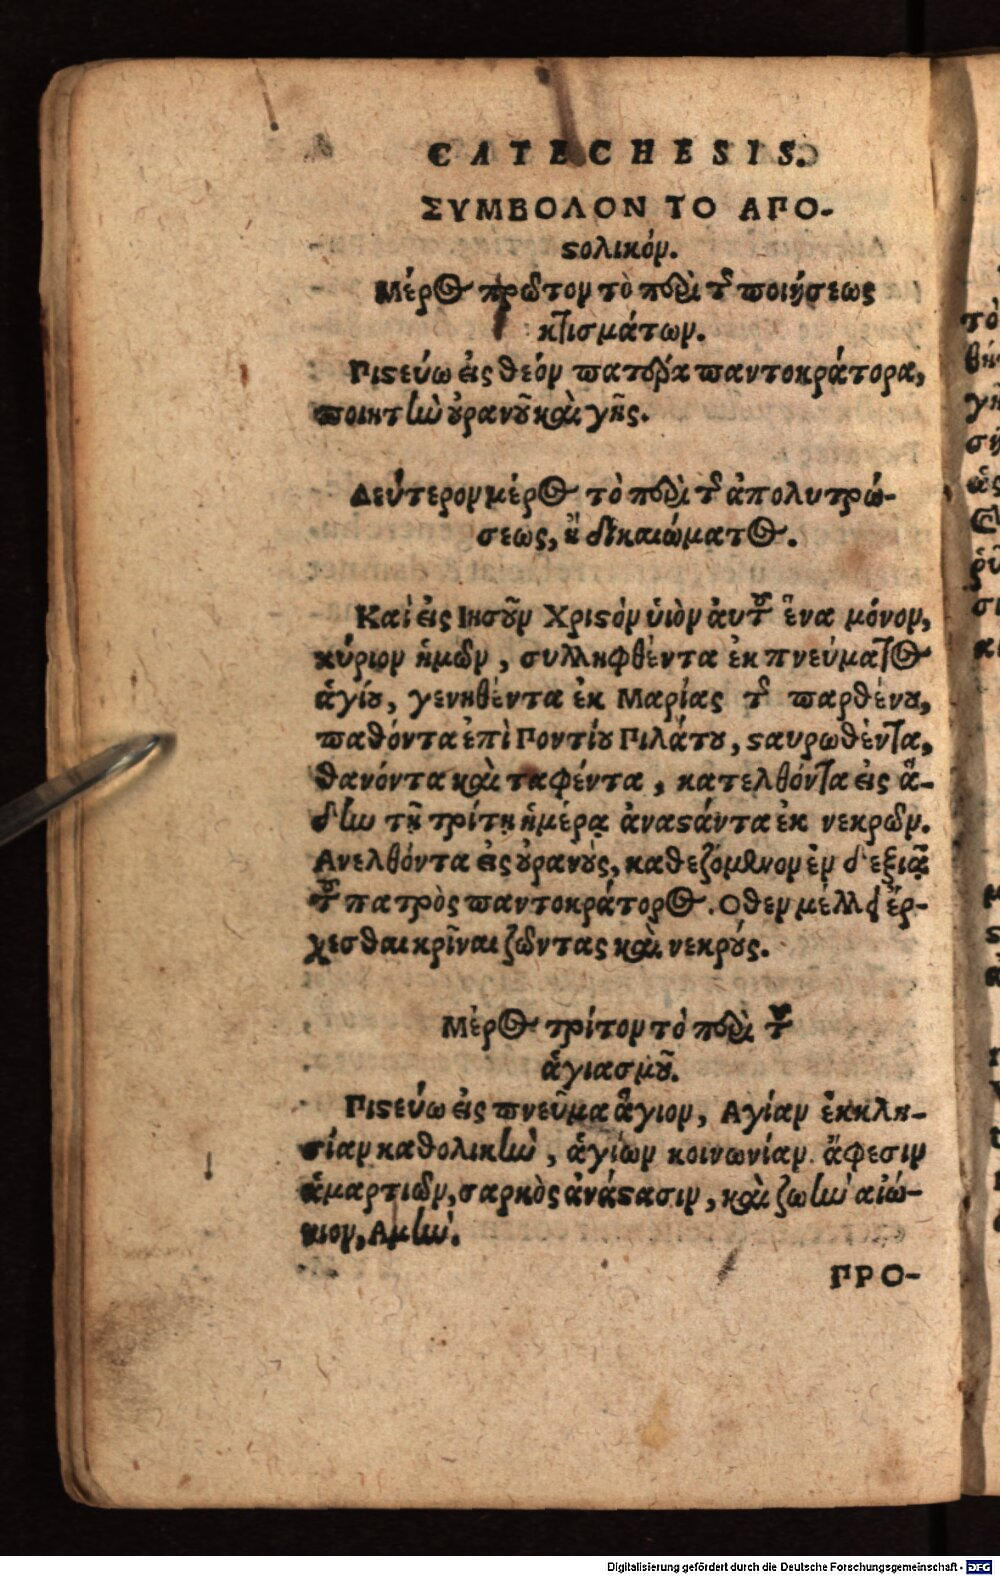 CATECHESIS.
ΣΥΜΒΟΛΟΝ ΤΟ ΑΠΟ-
ϛολικόν.
Μέρος πρῶτον τὸ περὶ τῆς ποιήσεως
κτισμάτων.
Πιϛεύω εἰς θεόν πατέρα παντοκράτορα,
ποιητὴν ὀρανοῦ καὶ γῆς.
Δεύτερον μέρος τὸ περὶ τῆς ἀπολυτρώ-
σεως, ἢ δικαιώματος.
Καὶ εἰς Ιησοῦν Χριϛὸν ὑιὸν ἀυτοῦ ἕνα μόνον,
κύριον ἡμῶν, συλληφθέντα ἐκ πνεύματος
ἁγίου, γενηθέντα ἐκ Μαρίας τῆς παρθένου,
παθόντα ἐπὶ Ποντίου Πιλάτου, ϛαυρωθέντα,
θανόντα καὶ ταφέντα, κατελθόντα εἰς ᾅ-
δην τῇ τρίτῃ ἡμέρᾳ ἀναϛάντα ἐκ νεκρῶν.
Ανελθόντα εἰς οὐρανοὺς, καθεζόμενον ἐν δεξιᾷ
τοῦ πατρὸς παντοκράτορος. Οθεν μέλλει ἔρ-
χεσθαι κρῖναι ζῶντας καὶ νεκρούς.
Μέρος τρίτον τὸ περὶ τοῦ
ἁγιασμοῦ.
Πιϛεύω εἰς πνεῦμα ἅγιον, Αγίαν ἐκκλη-
σίαν καθολικὴν, ἁγίων κοινωνίαν. ἄφεσιν
ἁμαρτιῶν, σαρκὸς ἀνάϛασιν, καὶ ζωὴν αἰώ-
νιον, Αμήν.
ΠΡΟ-
Digitalisierung gefördert durch die Deutsche Forschungsgemeinschaft - DFG